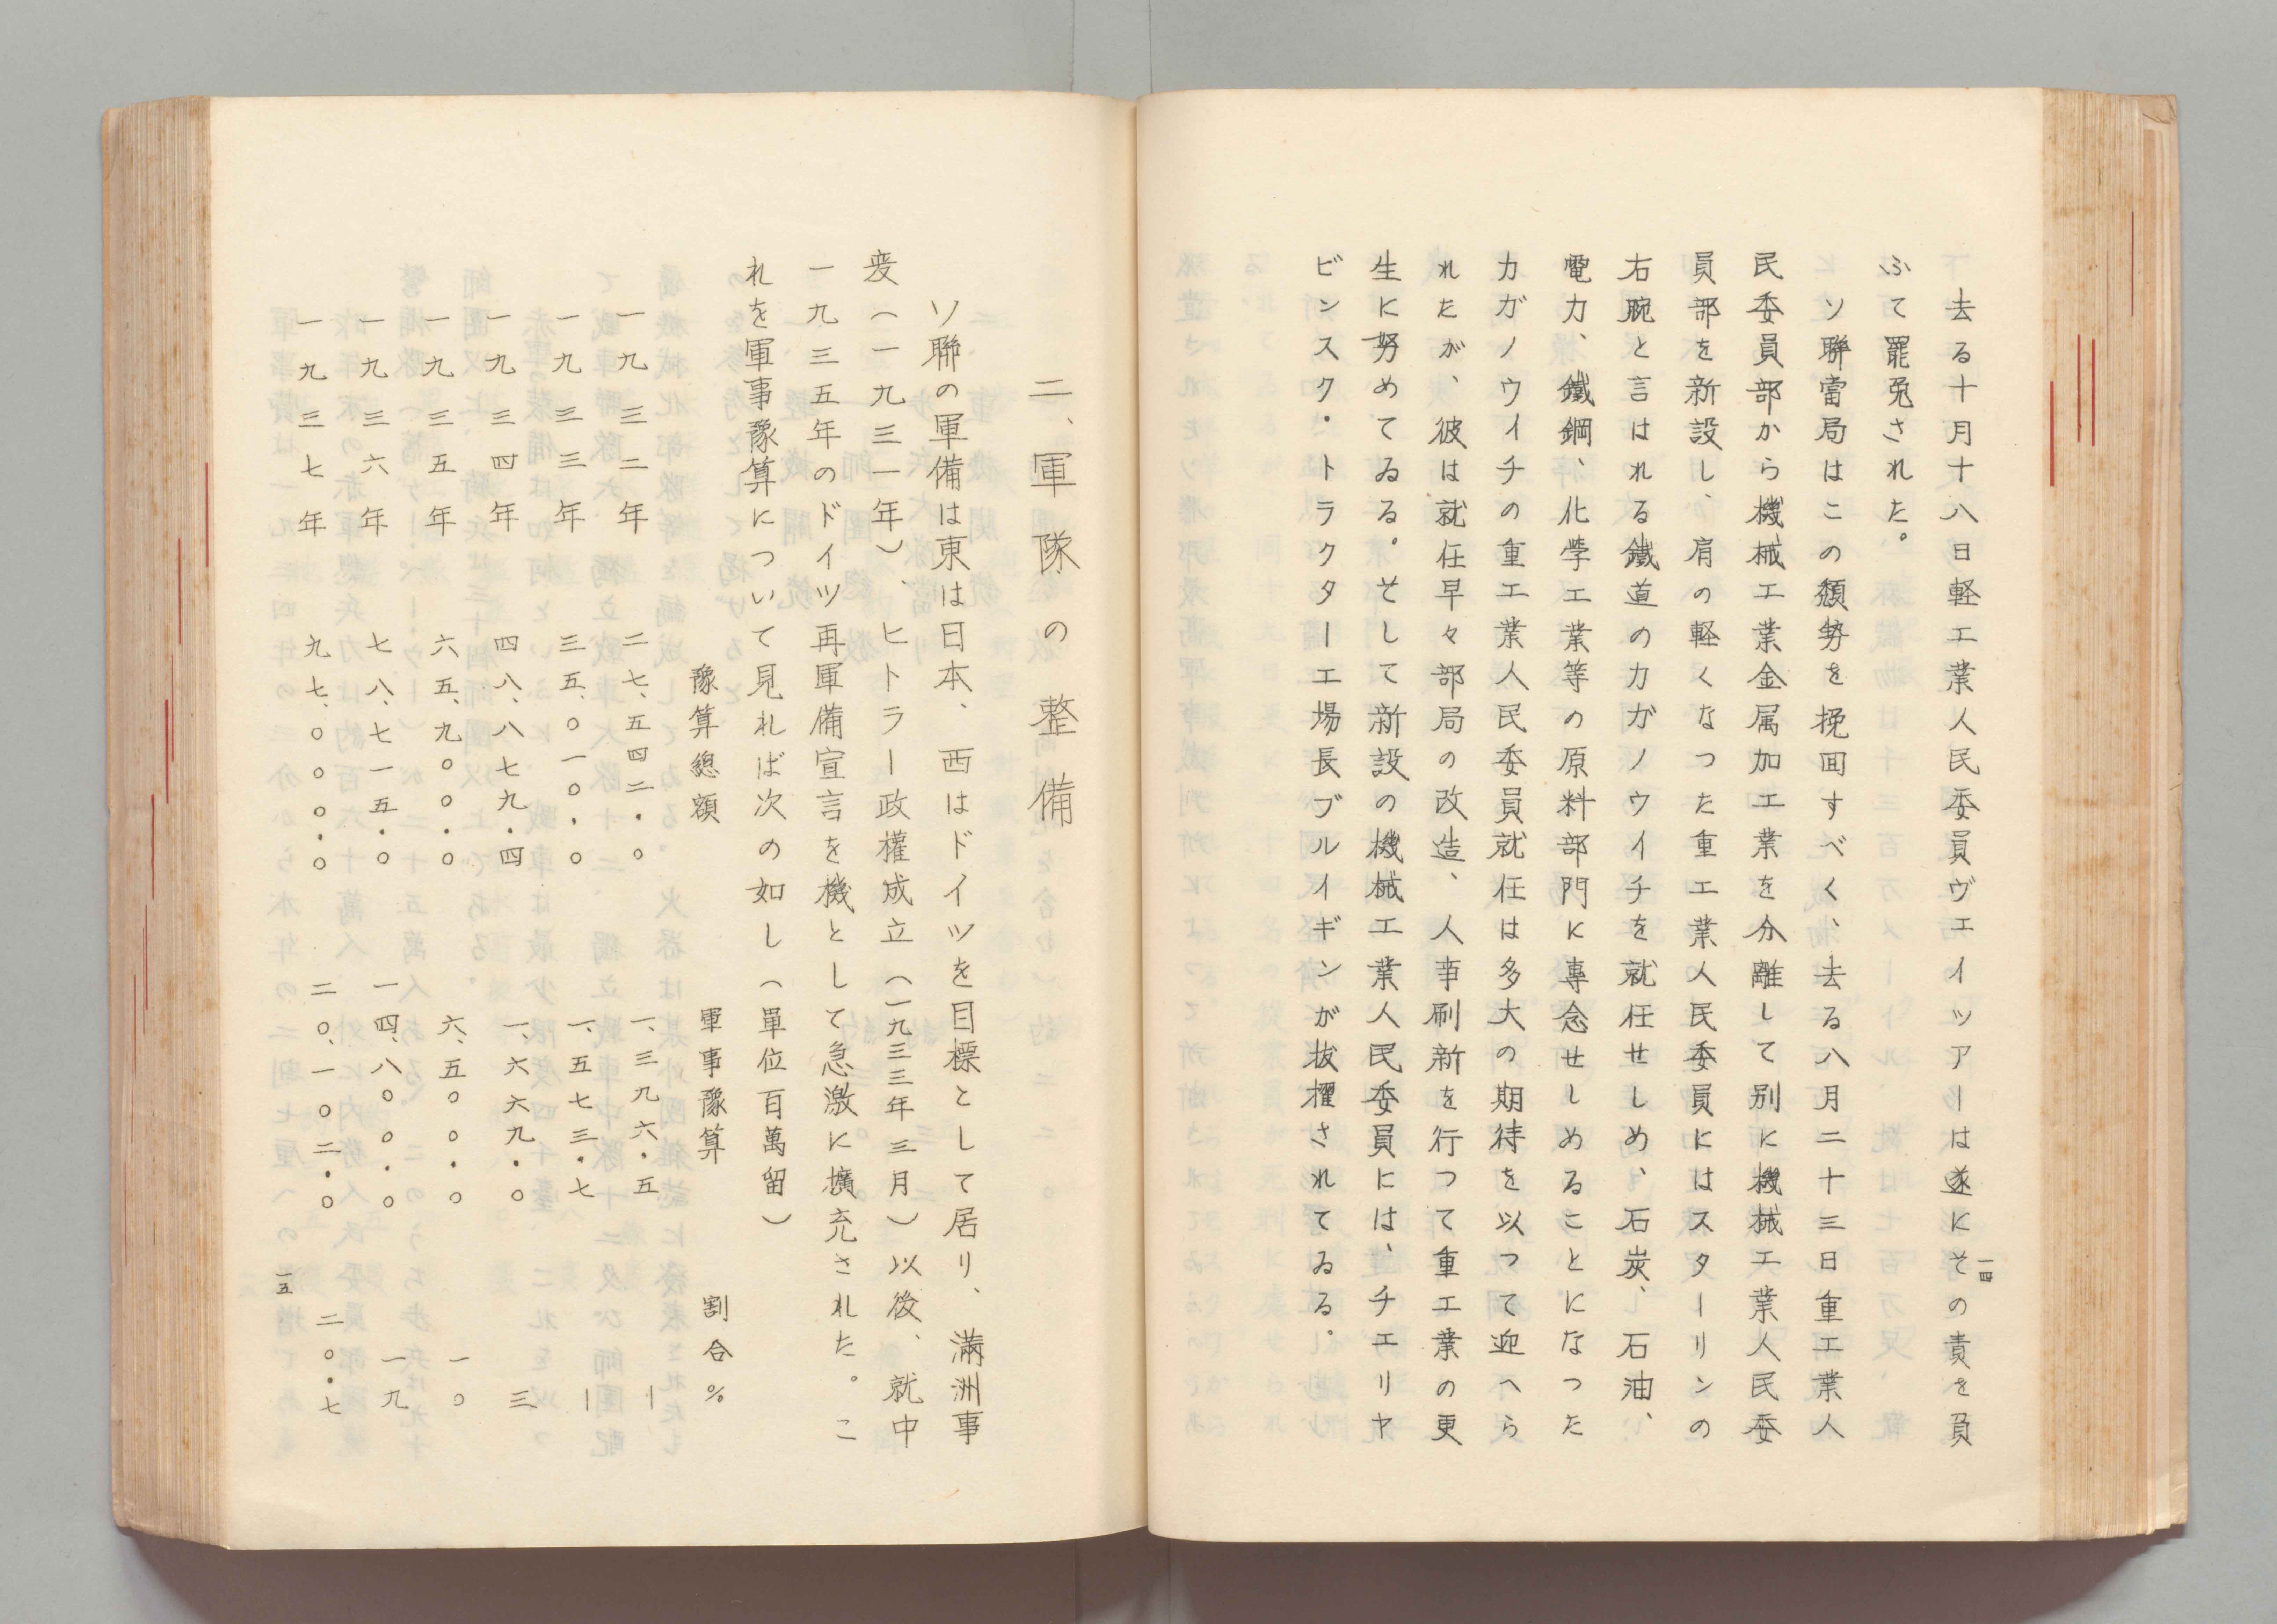 去る十月十八日軽工業人民委員ヴェイツアーは遂にその責を負
ふて罷免された。
ソ聯當局はこの頽勢を挽回すべく、去る八月二十三日重工業人
民委員部から機械工業金属加工業を分離して別に機械工業人民委
員部を新設し、肩の軽くなつた重工業人民委員にはスターリンの
右腕と言はれる鐵道のカガノウイチを就任せしめ、石炭、石油、
電力、鐵鋼、化学工業等の原料部門に專念せしめることになつた
カガノウイチの重工業人民委員就任は多大の期待を以つて迎へら
れたが、彼は就任早々部局の改造、人事刷新を行つて重工業の更
生に努めてゐる。そして新設の機械工業人民委員には、チエリヤ
ビンスク・トラクター工場長ブルイギンが抜擢されてゐる。
一四
二、軍隊の整備
ソ聯の軍備は東は日本、西はドイツを目標として居り、滿洲事
変（一九三一年）、ヒトラー政權成立（一九三三年三月）以後、就中
一九三五年のドイツ再軍備宣言を機として急激に擴充された。こ
れを軍事豫算について見れば次の如し（單位百萬留）
豫算總額 軍事豫算 割合%
一九三二年 二七、五四二・〇 一、三九六・五 ―
一九三三年 三五、〇一〇・〇 一、五七三・七 ―
一九三四年 四八、八七九・四 一、六六九・〇 三
一九三五年 六五、九〇〇・〇 六、五〇〇・〇 一〇
一九三六年 七八、七一五・〇 一四、八〇〇・〇 一九
一九三七年 九七、〇〇〇・〇 二〇、一〇二・〇 二〇・七
一五